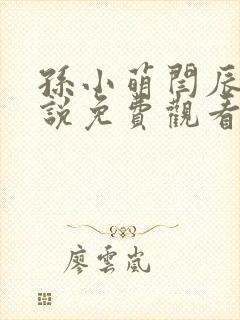 孫小萌閆辰
說免費觀看
廖雲嵐